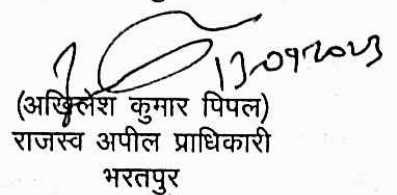 13-09-2023
(अखिलेश कुमार पिपल)
राजस्व अपील प्राधिकारी
भरतपुर